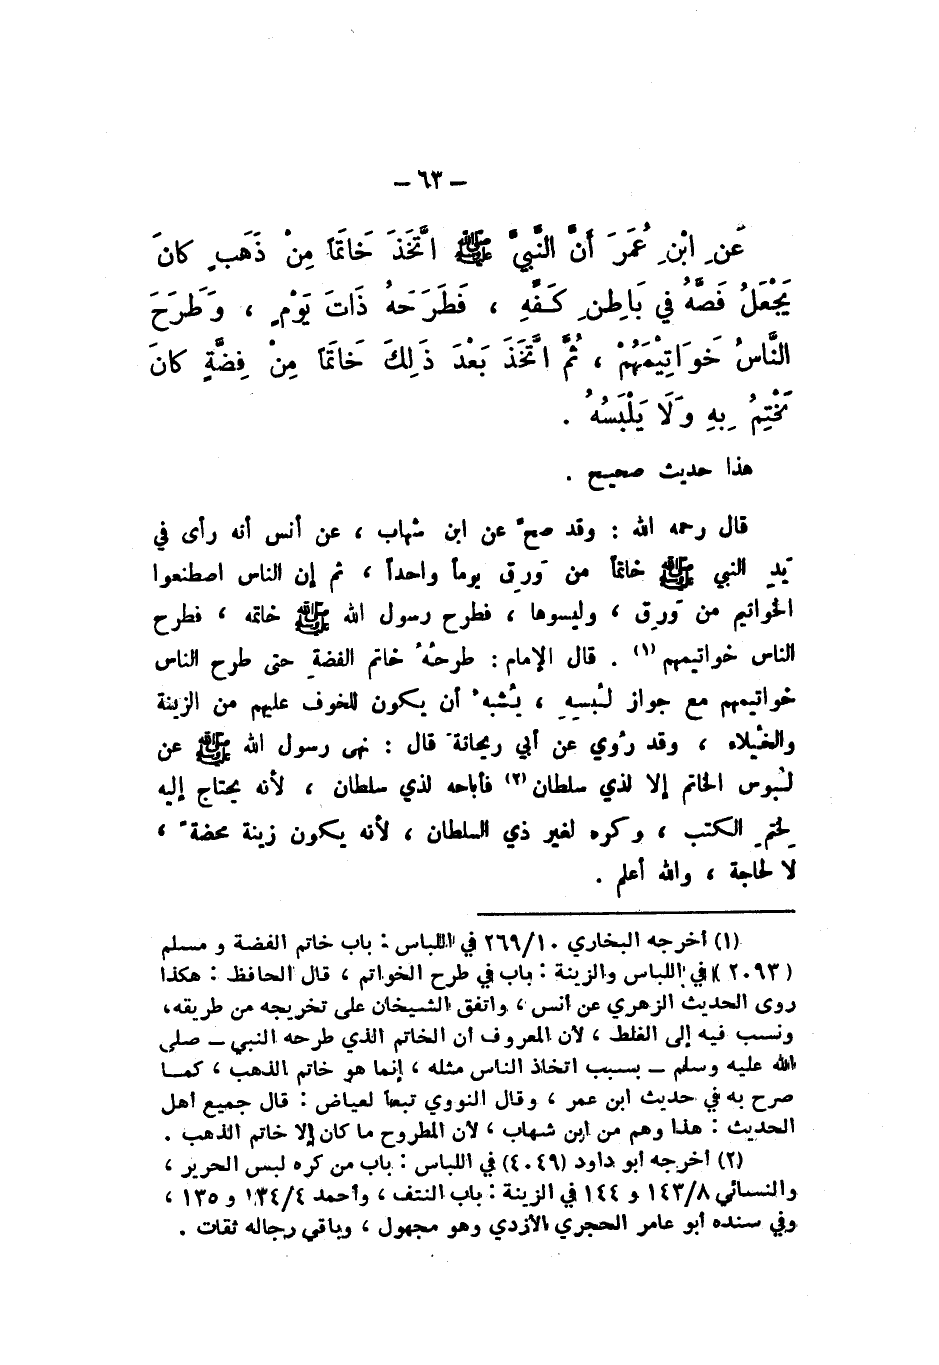 – ٦٣ –
عَنِ ابْنِ عُمَرَ أَنَّ النَّبِيَّ ﷺ اتَّخَذَ خَاتَمًا مِنْ ذَهَبٍ كانَ
يَجْعَلُ فَصَّهُ في بَاطِنِ كَفَّهِ ، فَطَرَحَهُ ذَاتَ يَوْمٍ ، وَطَرَحَ
النَّاسُ خَوَاتِيْمَهُمْ ، ثُمَّ اتَّخَذَ بَعْدَ ذَلِكَ خَاتَمًا مِنْ فِضَّةٍ كانَ
يَخْتِمُ بِهِ وَلَا يَلْبَسُهُ .
هذا حديث صحيح .
قال رحمه الله : وقد صحَّ عن ابن شهاب ، عن أنس أنه رأى في
يَدِ النبي ﷺ خاتماً من وَرِق يوماً واحداً ، ثم إن الناس اصطنعوا
الخواتيم من وَرِق ، ولبسوها ، فطرح رسول الله ﷺ خاتمه ، فطرح
الناس خواتيمهم (١) . قال الإمام : طرحُهُ خاتم الفضةِ حتى طرح الناس
خواتيمهم مع جواز لُبْسِهِ ، يُشْبِهُ أن يكون للخوف عليهم من الزينة
والخُيلاء ، وقد رُوي عن أبي ريحانةَ قال : نهى رسول الله ﷺ عن
لُبُوس الخاتم إلا لذي سلطان (٢) فأباحه لذي سلطان ، لأنه يحتاج إليه
لِختمِ الكتب ، وكره لغير ذي السلطان ، لأنه يكون زينة محضةً ،
لا لحاجة ، والله أعلم .
(١) أخرجه البخاري ٢٦٩/١٠ في اللباس : باب خاتم الفضة و مسلم
(٢٠٩٣) في اللباس والزينة : باب في طرح الخواتم ، قال الحافظ : هكذا
روى الحديث الزهري عن أنس ، واتفق الشيخان على تخريجه من طريقه،
ونسب فيه إلى الغلط ، لأن المعروف أن الخاتم الذي طرحه النبي – صلى
الله عليه وسلم – بسبب اتخاذ الناس مثله ، إنما هو خاتم الذهب ، كما
صرح به في حديث ابن عمر ، وقال النووي تبعاً لعياض : قال جميع أهل
الحديث : هذا وهم من ابن شهاب ، لأن المطروح ما كان إلا خاتم الذهب .
(٢) أخرجه أبو داود (٤٠٤٩) في اللباس : باب من كره لبس الحرير ،
والنسائي ١٤٣/٨ و ١٤٤ في الزينة : باب النتف ، وأحمد ١٣٤/٤ و ١٣٥ ،
وفي سنده أبو عامر الحجري الأزدي وهو مجهول ، وباقي رجاله ثقات .